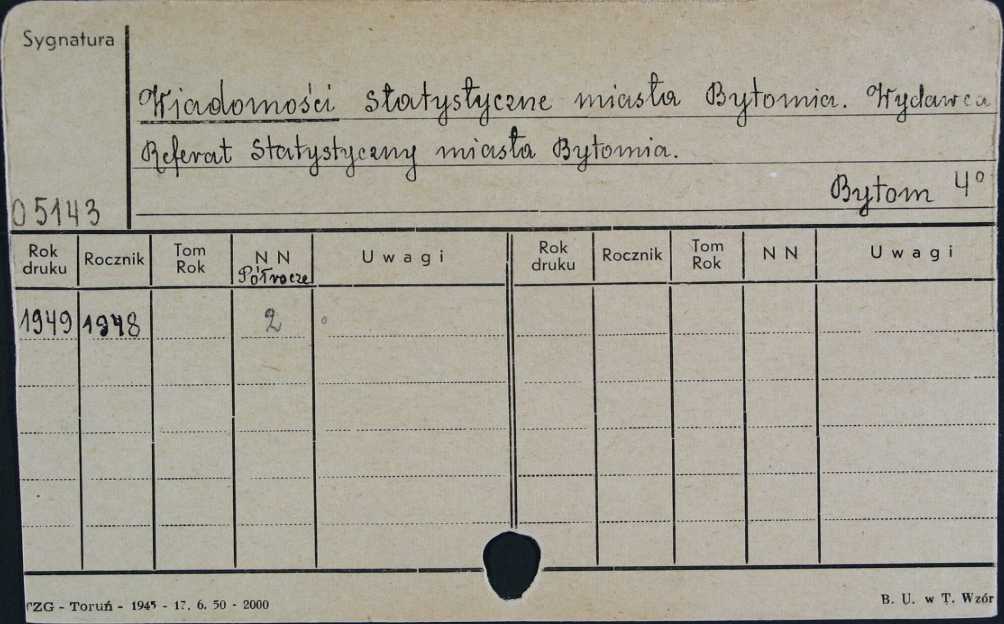 Sygnatura
Wiadomości statystyczne miasta Bytomia. Wydawca
Referat Statystyczny miasta Bytomia.
Bytom 4°
05143
Rok druku Rocznik Tom Rok N N Półrocze Uwagi Rok druku Rocznik Tom Rok N N Uwagi
1949 1948 2
PZG - Toruń - 1945 - 17. 6. 50 - 2000
B. U. w T. Wzór